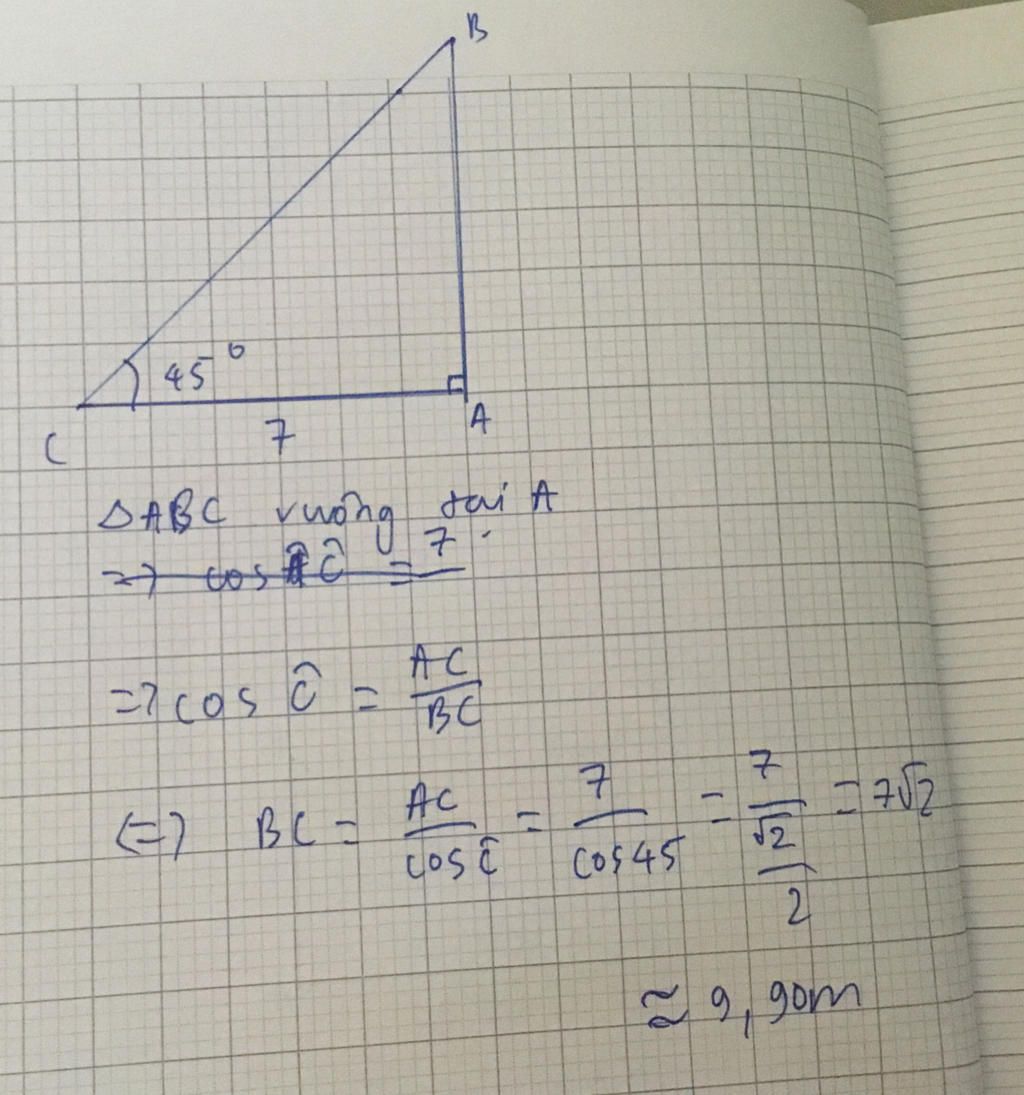 B
45°
C
7
A
ΔABC vuông tại A
=> cos Ĉ = 7
=> cos Ĉ = AC/BC
<=> BC = AC/cos Ĉ = 7/cos45 = 7/(√2/2) = 7√2
≈ 9,90m